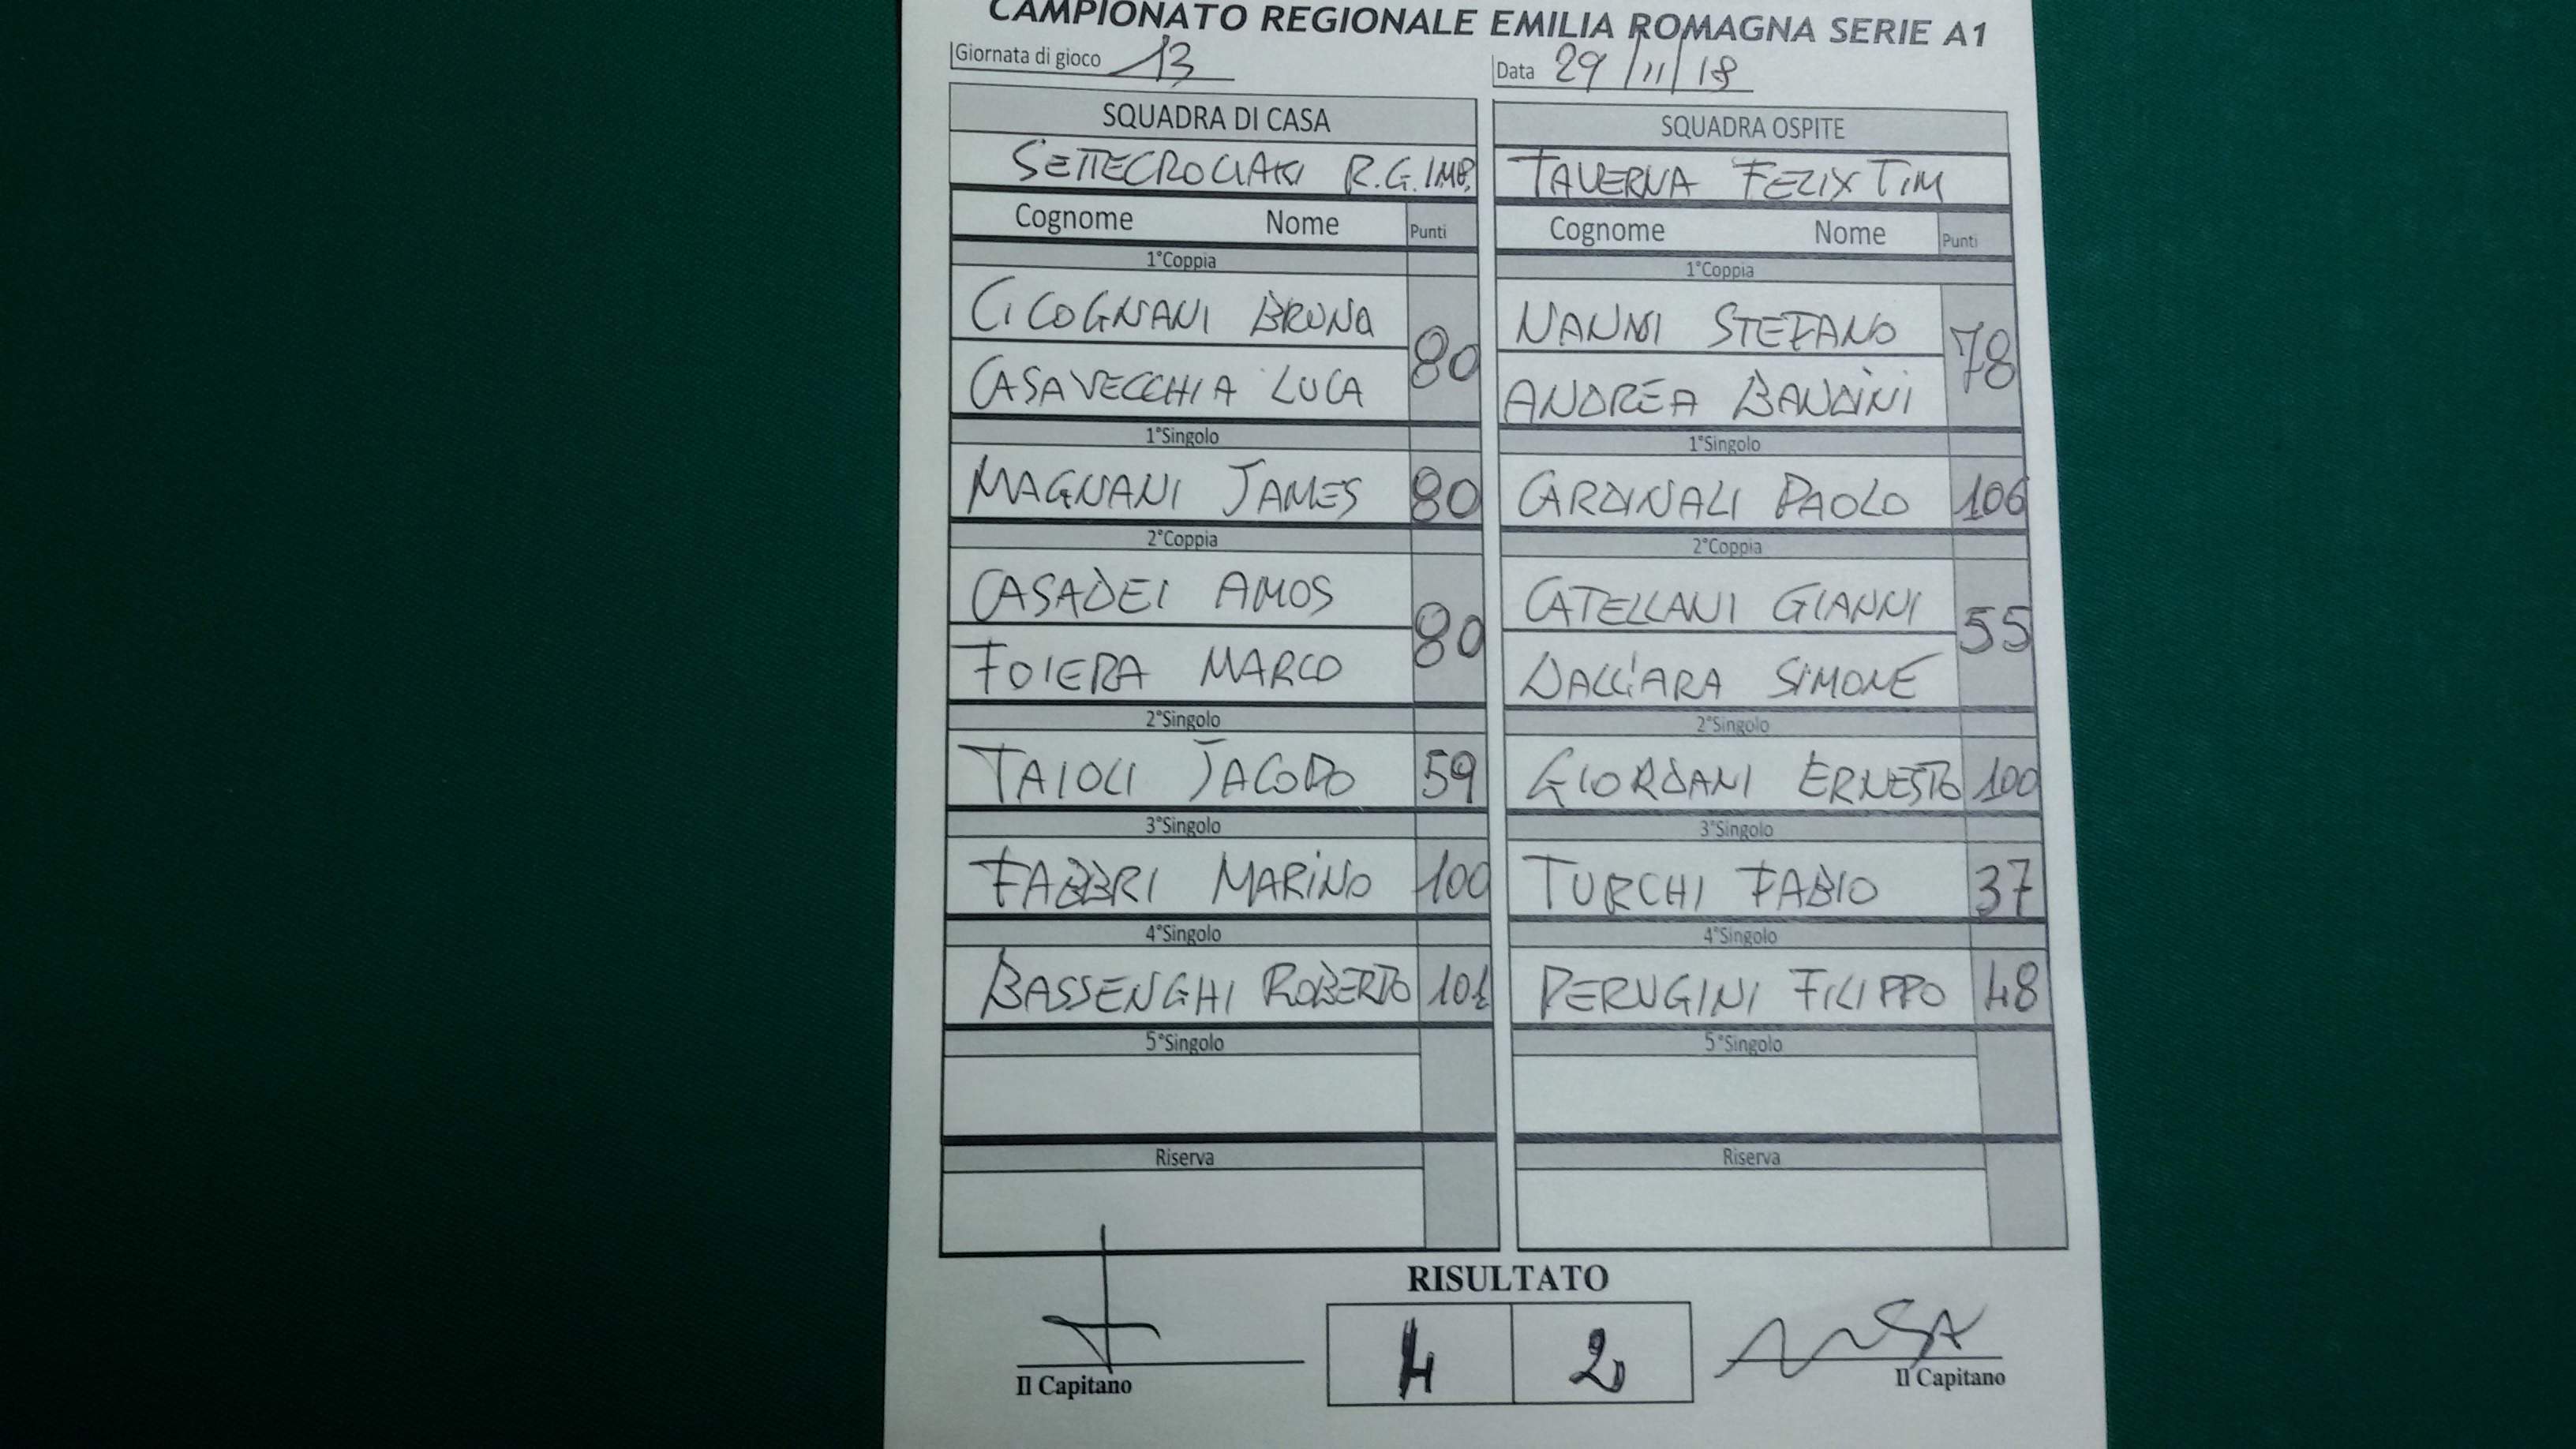 CAMPIONATO REGIONALE EMILIA ROMAGNA SERIE A1
Giornata di gioco 13 Data 29/11/18
SQUADRA DI CASA SQUADRA OSPITE
SETTECROCIARI R.G. IMP. TAVERNA FELIX TIM
Cognome Nome Punti Cognome Nome Punti
1°Coppia 1°Coppia
CICOGNANI BRUNO 80 NANNI STEFANO 78
CASAVECCHIA LUCA ANDREA BANDINI
1°Singolo 1°Singolo
MAGNANI JAMES 80 CARDINALI PAOLO 106
2°Coppia 2°Coppia
CASADEI AMOS 80 CATELLANI GIANNI 55
FOIERA MARCO DALL'ARA SIMONE
2°Singolo 2°Singolo
TAIOLI JACOPO 59 GIORDANI ERNESTO 100
3°Singolo 3°Singolo
FABBRI MARINO 100 TURCHI FABIO 37
4°Singolo 4°Singolo
BASSENGHI ROBERTO 101 PERUGINI FILIPPO 48
5°Singolo 5°Singolo
Riserva Riserva
RISULTATO
4 2
Il Capitano Il Capitano